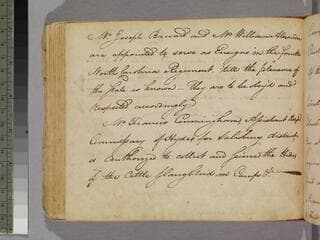 Mr. Joseph Brevard and Mr. William
are appointed to serve as Ensigns in the fourth
North Carolina Regiment, till the pleasure of
the State is known. They are to be obey'd and
respected accordingly
Mr. Francis Cunningham Assistant Dep
Commissary of Hydes for Salisbury district
is Authorized to collect and the Hides
of the Cattle Slaughtered in Camp &